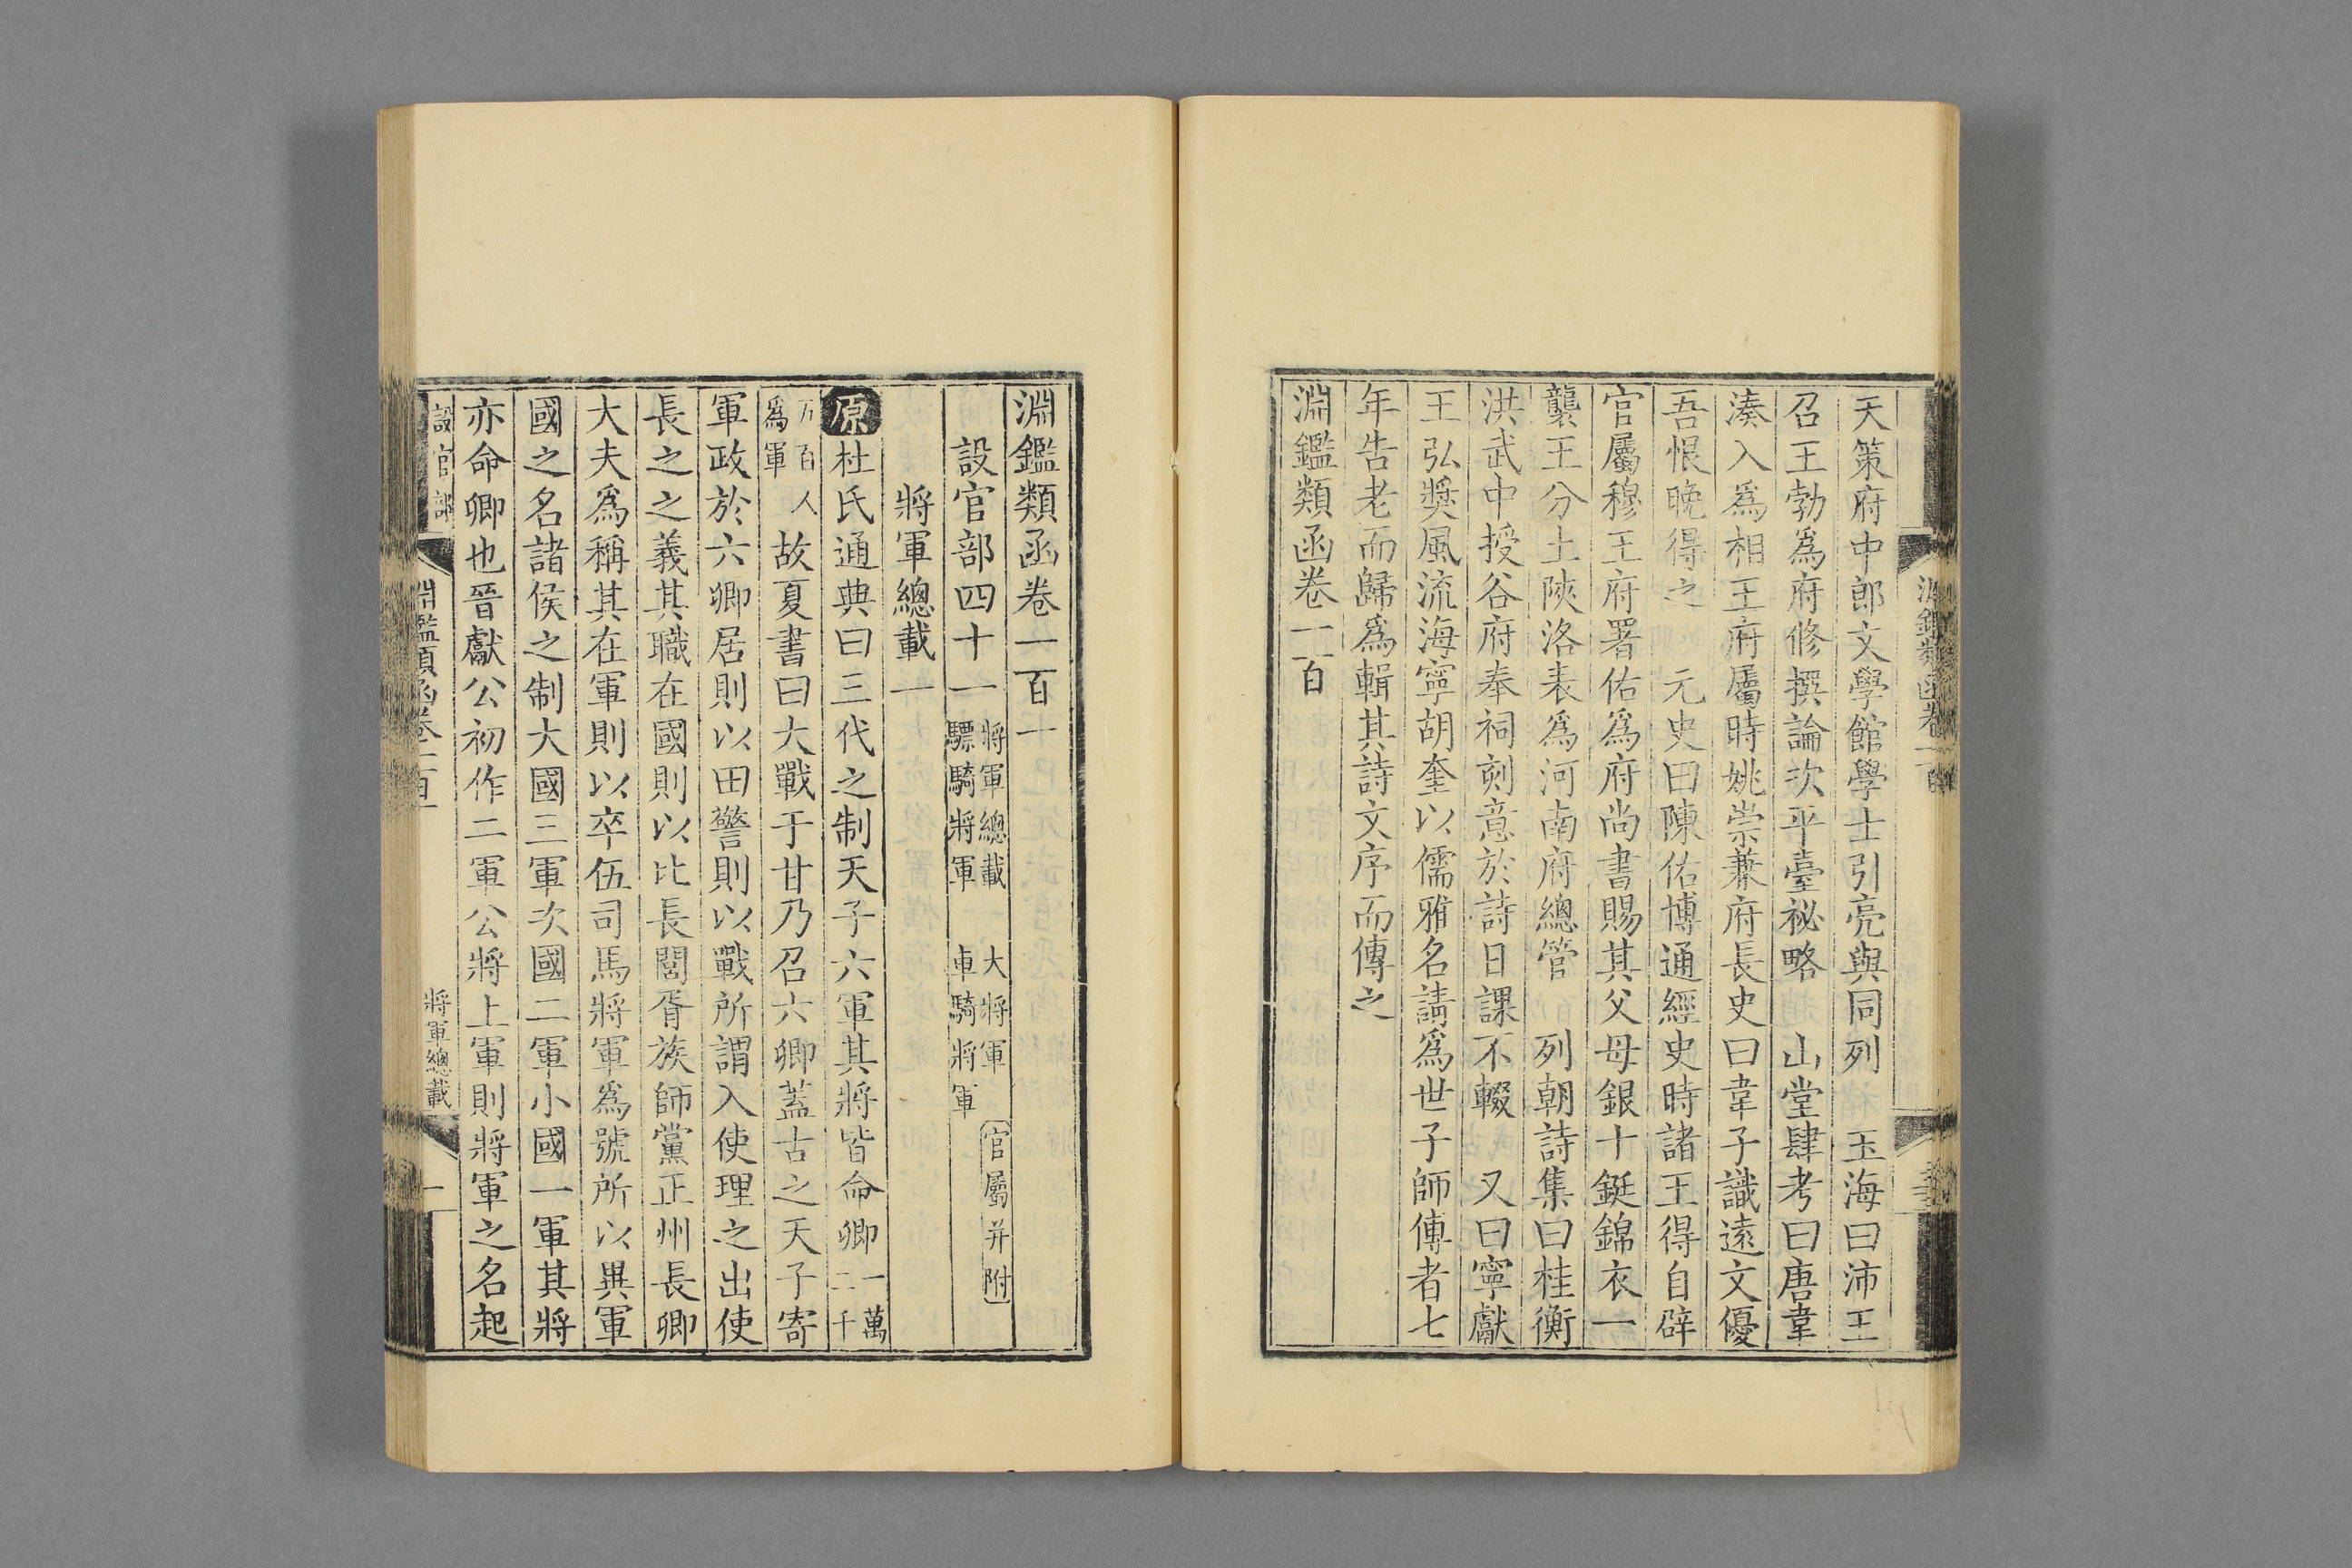 天策府中郎文學館學士引亮與同列　玉海曰沛王
召王勃爲府修撰論次平臺祕略　山堂肆考曰唐韋
湊入爲相王府屬時姚崇兼府長史曰韋子識遠文優
吾恨晚得之　元史曰陳佑博通經史時諸王得自辟
官屬穆王府署佑爲府尚書賜其父母銀十鋌錦衣一
襲王分土陝洛表爲河南府總管　列朝詩集曰桂衡
洪武中授谷府奉祠刻意於詩日課不輟　又曰寧獻
王弘奬風流海寧胡奎以儒雅名請爲世子師傅者七
年告老而歸爲輯其詩文序而傳之
淵鑑類函卷一百
淵鑑類函卷一百十
設官部四十一
將軍總載一　大將軍　官屬并附
驃騎將軍　車騎將軍
將軍總載一
原杜氏通典曰三代之制天子六軍其將皆命卿一萬二千
五百人爲軍故夏書曰大戰于甘乃召六卿蓋古之天子寄
軍政於六卿居則以田警則以戰所謂入使理之出使
長之之義其職在國則以比長閭胥族師黨正州長卿
大夫爲稱其在軍則以卒伍司馬將軍爲號所以異軍
國之名諸侯之制大國三軍次國二軍小國一軍其將
亦命卿也晉獻公初作二軍公將上軍則將軍之名起
設官部
淵鑑類函卷一百一
將軍總載
一